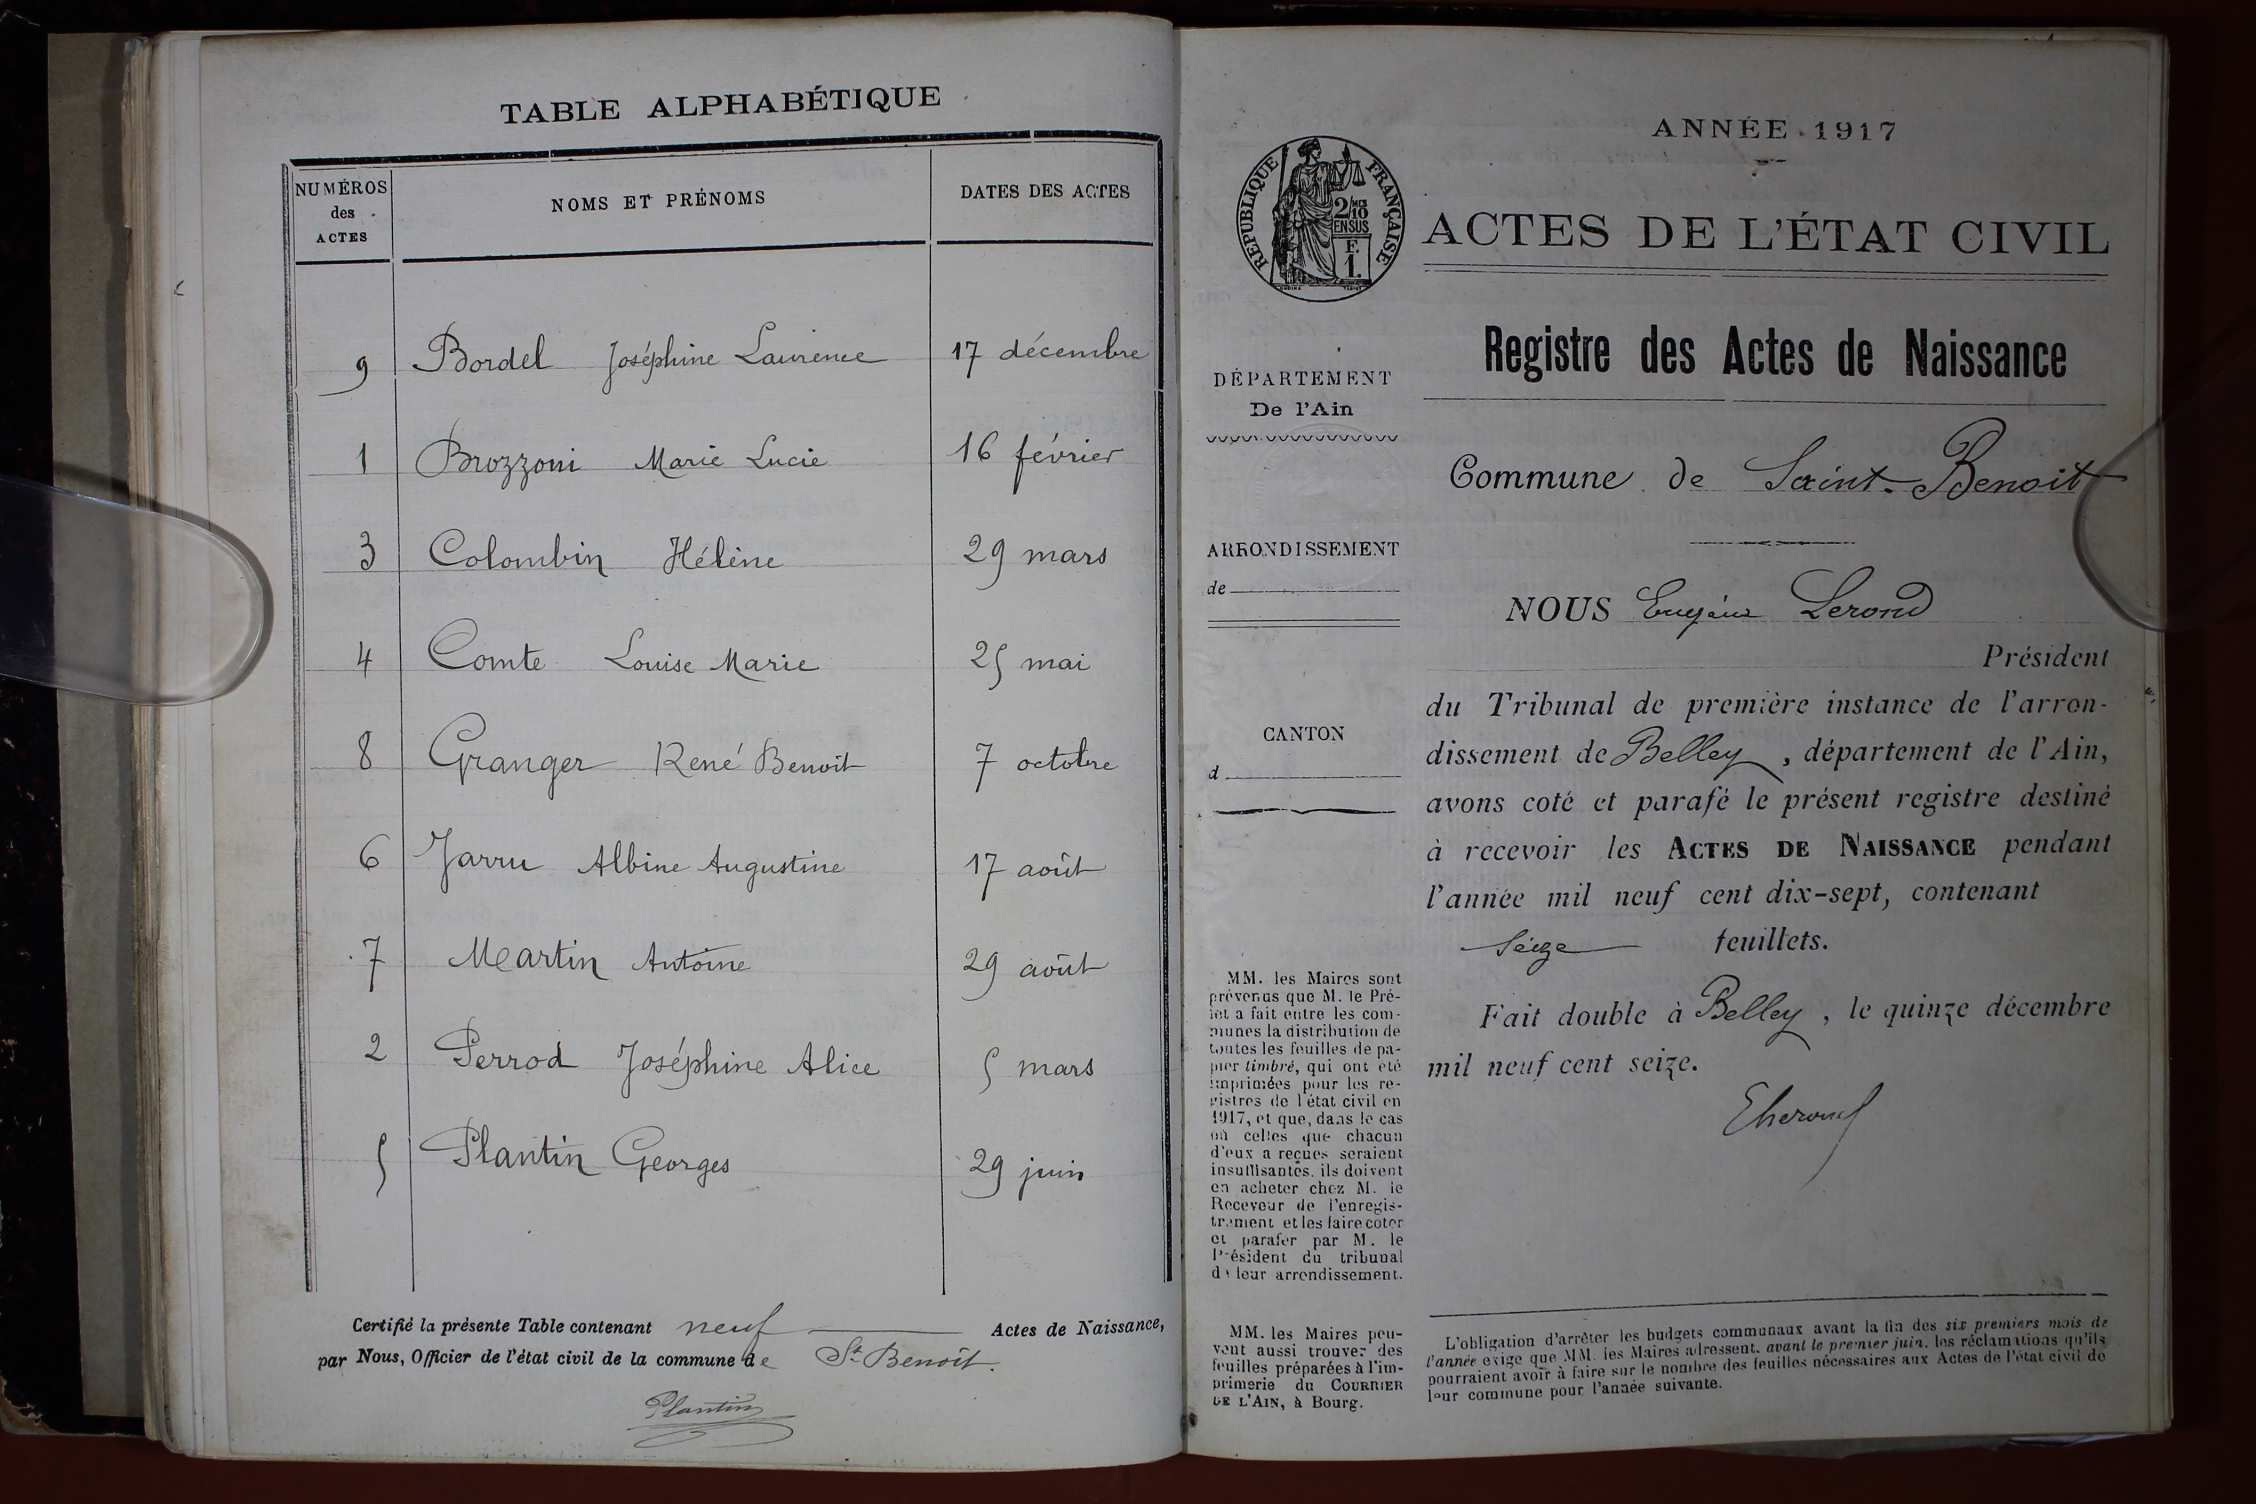 TABLE ALPHABÉTIQUE
NUMÉROS des ACTES
NOMS ET PRÉNOMS
DATES DES ACTES
9 Bordel Joséphine Laurence 17 décembre
1 Brozzoni Marie Lucie 16 février
3 Colombin Hélène 29 mars
4 Comte Louise Marie 25 mai
8 Granger René Benoit 7 octobre
6 Jarru Albine Augustine 17 août
7 Martin Antoine 29 août
2 Perrod Joséphine Alice 5 mars
5 Plantin Georges 29 juin
Certifié la présente Table contenant neuf Actes de Naissance,
par Nous, Officier de l'état civil de la commune de St Benoît.
Plantin
ANNÉE 1917
RÉPUBLIQUE FRANÇAISE
2/10
EN SUS
F.
1.
ACTES DE L'ÉTAT CIVIL
Registre des Actes de Naissance
DÉPARTEMENT
De l'Ain
Commune de Saint-Benoit
ARRONDISSEMENT
de
NOUS Eugène Lerond
Président
du Tribunal de première instance de l'arron-
dissement de Belley, département de l'Ain,
avons coté et parafé le présent registre destiné
à recevoir les ACTES DE NAISSANCE pendant
l'année mil neuf cent dix-sept, contenant
Seize feuillets.
Fait double à Belley, le quinze décembre
mil neuf cent seize.
CANTON
d
MM. les Maires sont
prévenus que M. le Pré-
fet a fait entre les com-
munes la distribution de
toutes les feuilles de pa-
pier timbré, qui ont été
imprimées pour les re-
gistres de l'état civil en
1917, et que, dans le cas
où celles que chacun
d'eux a reçues seraient
insuffisantes, ils doivent
en acheter chez M. le
Receveur de l'enregis-
trement et les faire coter
et parafer par M. le
Président du tribunal
de leur arrondissement.
MM. les Maires peu-
vent aussi trouver des
feuilles préparées à l'im-
primerie du COURRIER
DE L'AIN, à Bourg.
L'obligation d'arrêter les budgets communaux avant la fin des six premiers mois de
l'année exige que MM. les Maires adressent, avant le premier juin, les réclamations qu'ils
pourraient avoir à faire sur le nombre des feuilles nécessaires aux Actes de l'état civil de
leur commune pour l'année suivante.